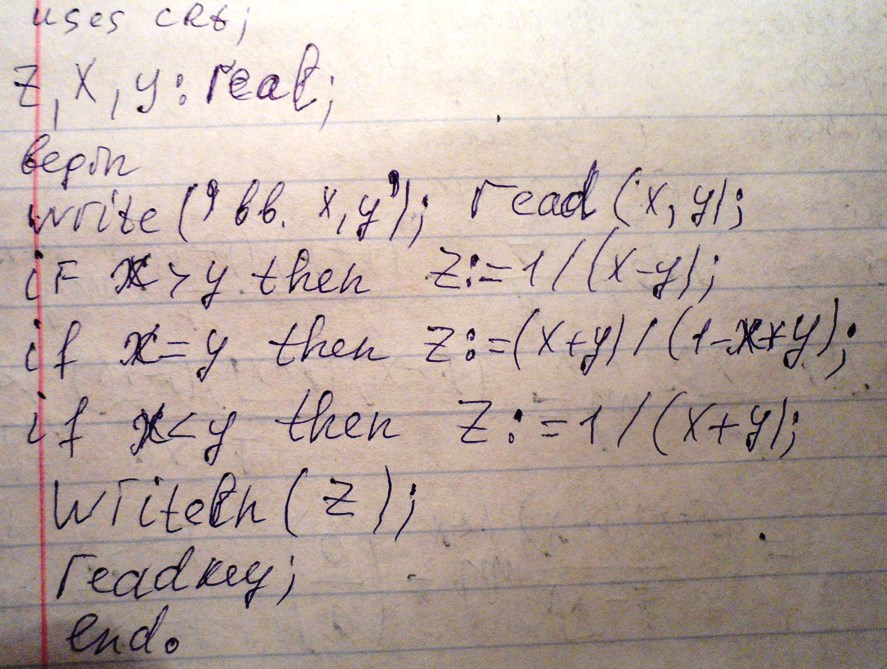 uses crt;
z, x, y: real;
begin
write ('вв. x, y'); read (x, y);
if x > y then z:=1/(x-y);
if x=y then z:=(x+y)/(1-x*y);
if x<y then z:=1/(x+y);
writeln (z);
readkey;
end.